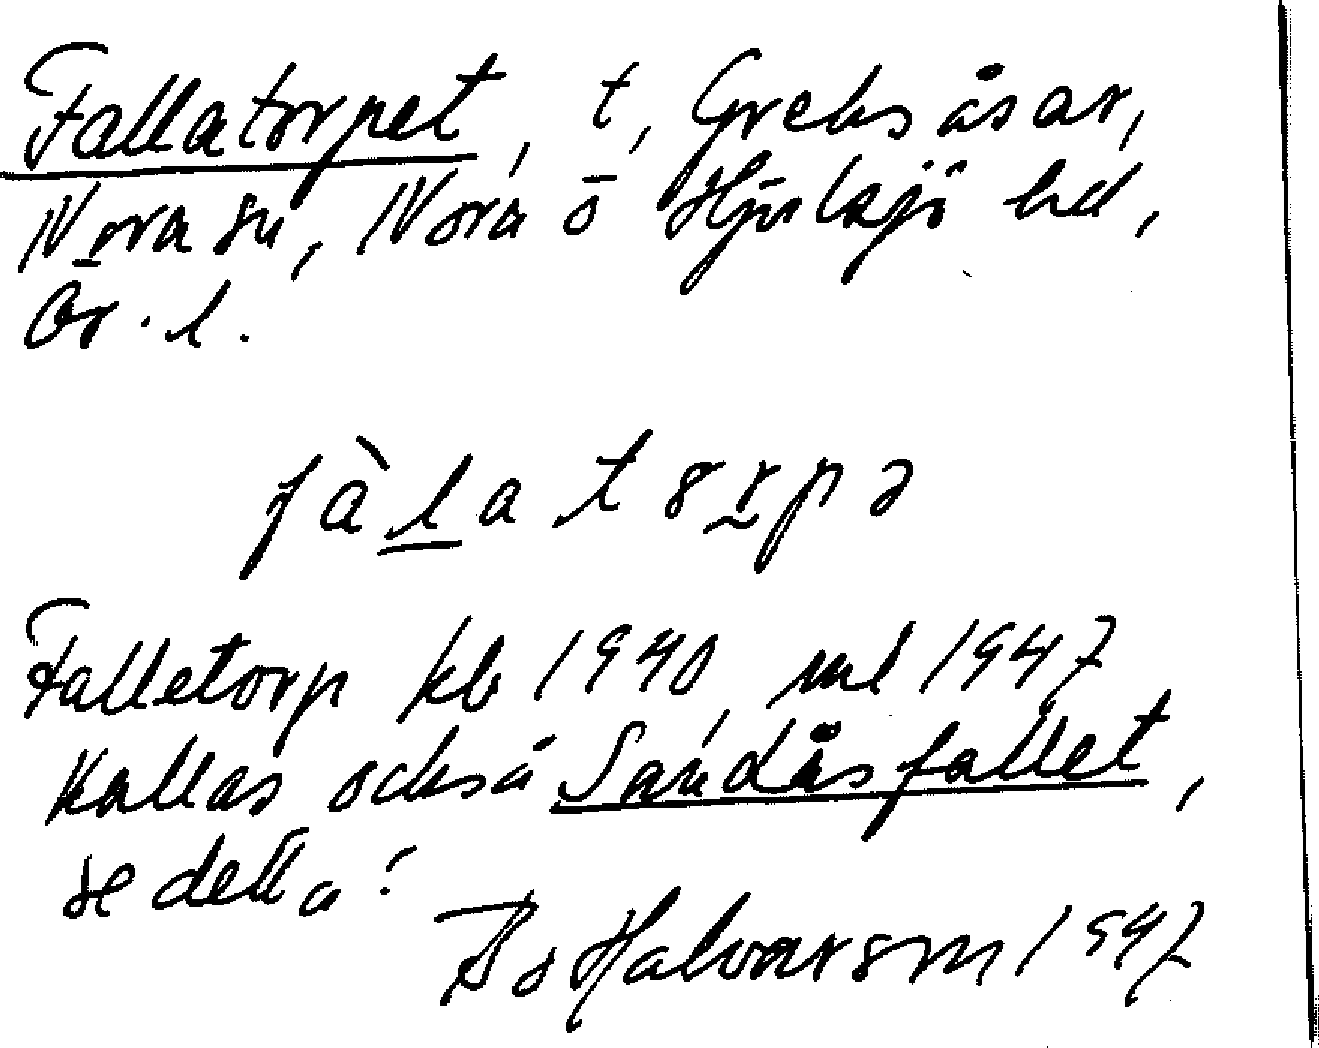 Fallatorpet, t, Greksåsar,
Nora sn, Nora o Hjulsjö hd,
Ör. l.
fàlatorpə
Falletorp kb 1940, ml 1947
Kallas också Sandåsfallet,
se detta!
Bo Halvarson 1947